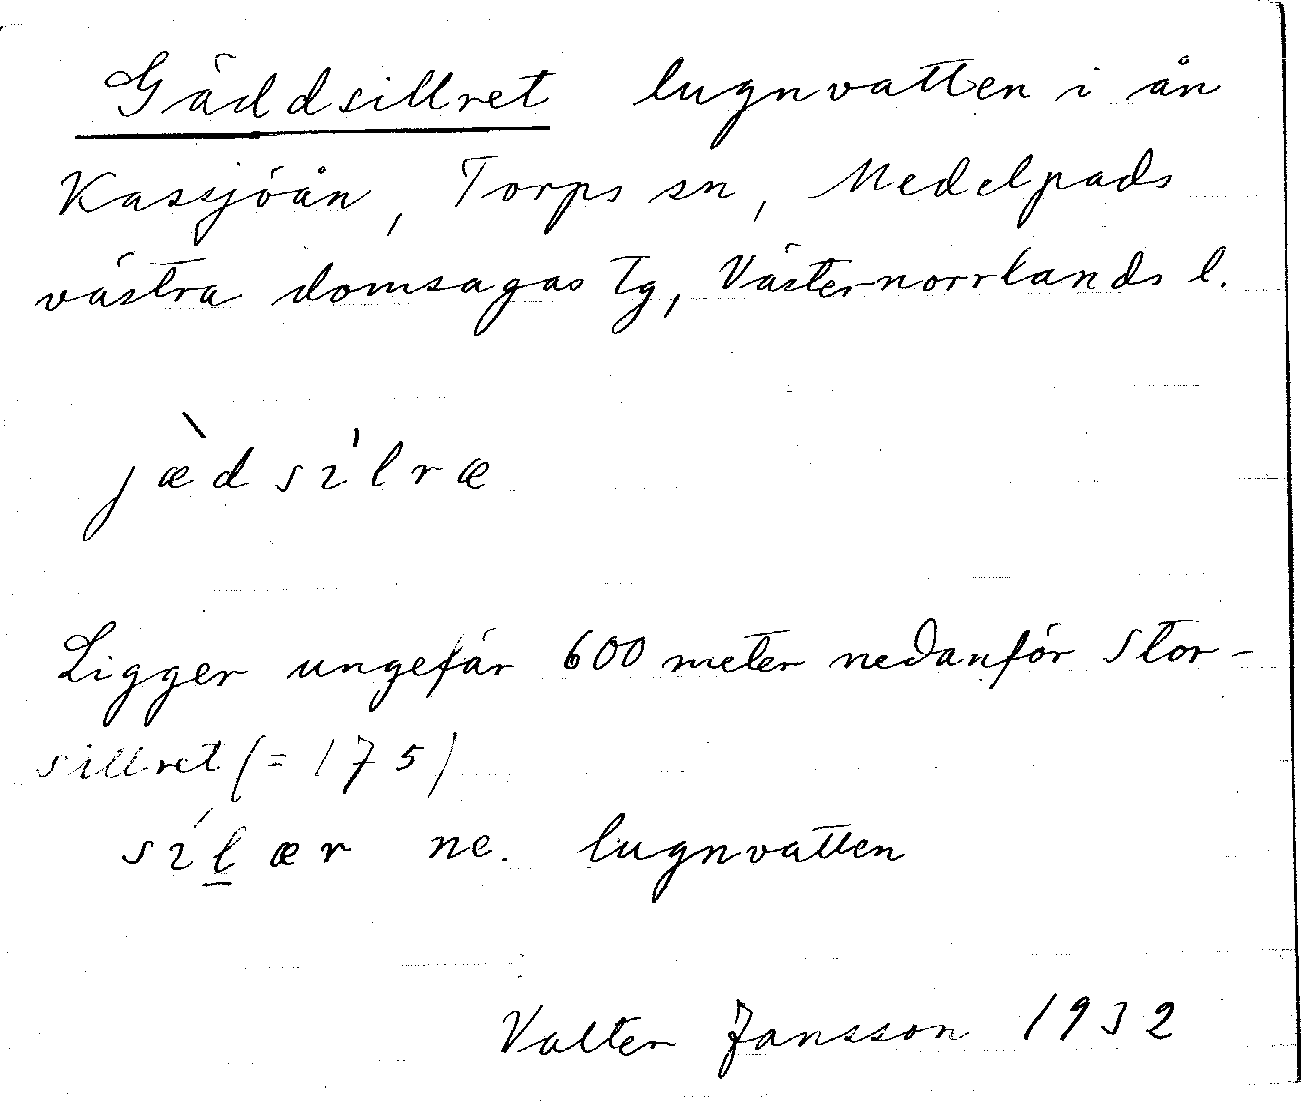 Gäddsillret lugnvatten i ån
Kassjöån, Torps sn, Medelpads
västra domsagas tg, Västernorrlands l.
jæ̀dsi̍lræ
Ligger ungefär 600 meter nedanför Stor-
sillret (= 175)
síl̲ær ne. lugnvatten
Valter Jansson 1932